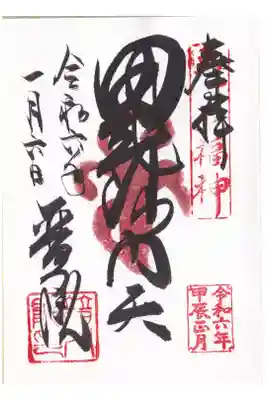 奉拝
福神
令和六年
甲辰正月
毘沙門天
令和六年
一月六日